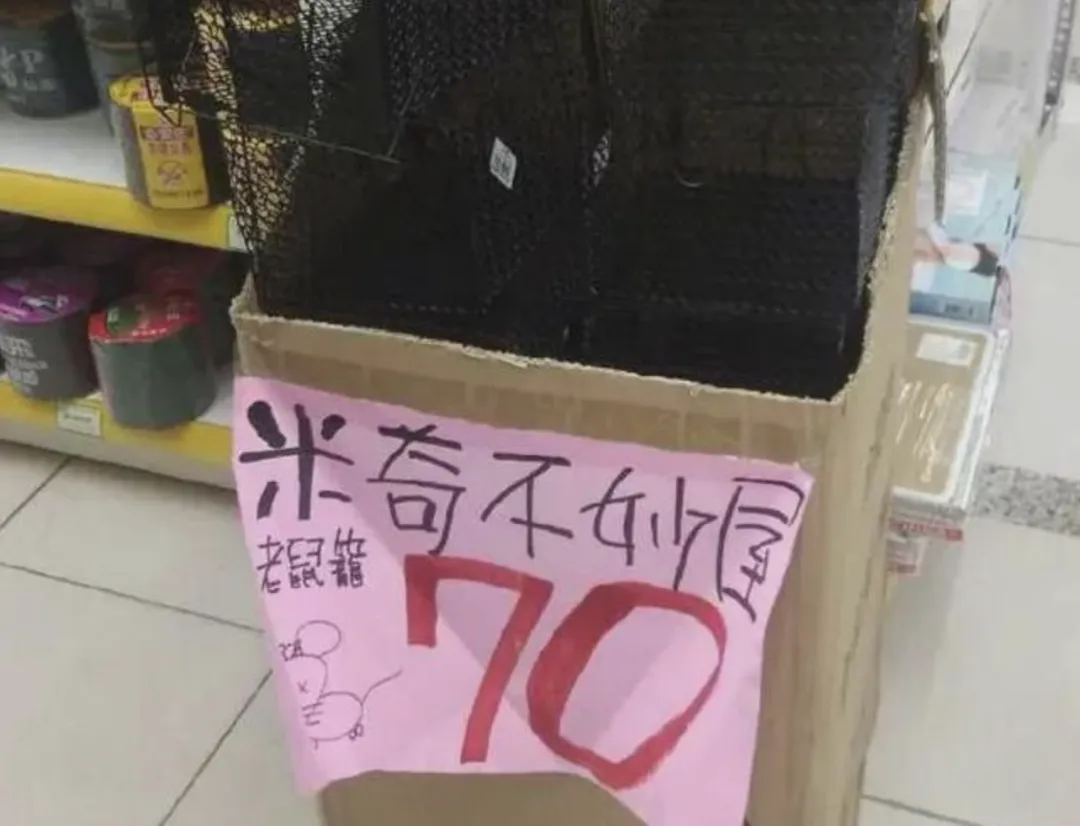 米奇不妙屋
老鼠籠
70